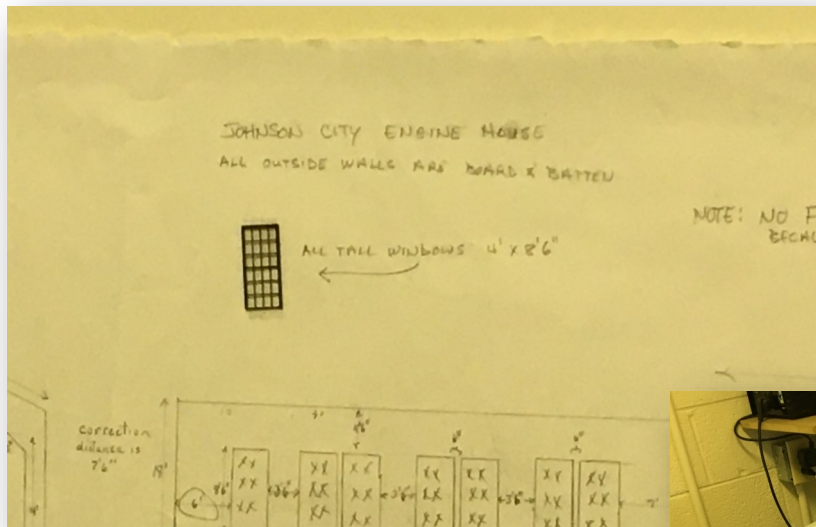 JOHNSON CITY ENGINE HOUSE
ALL OUTSIDE WALLS ARE BOARD & BATTEN
NOTE: NO F
BECAU
ALL TALL WINDOWS 4' X 8'6"
correction
distance is
7'6"
18'
8'6"
6'
3'6"
6"
3'6"
6"
3'6"